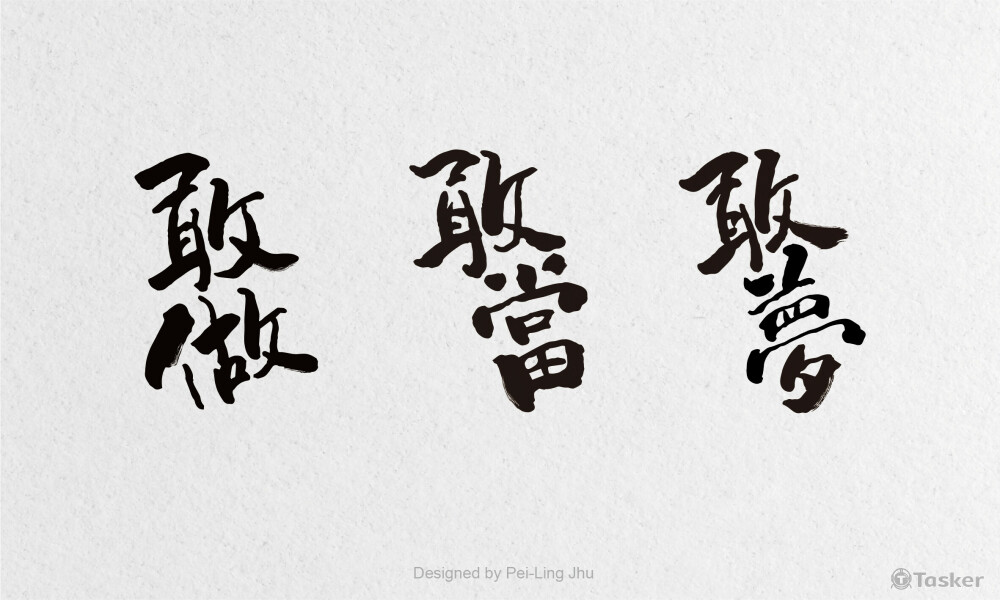 敢做
敢當
敢夢
Designed by Pei-Ling Jhu
Tasker